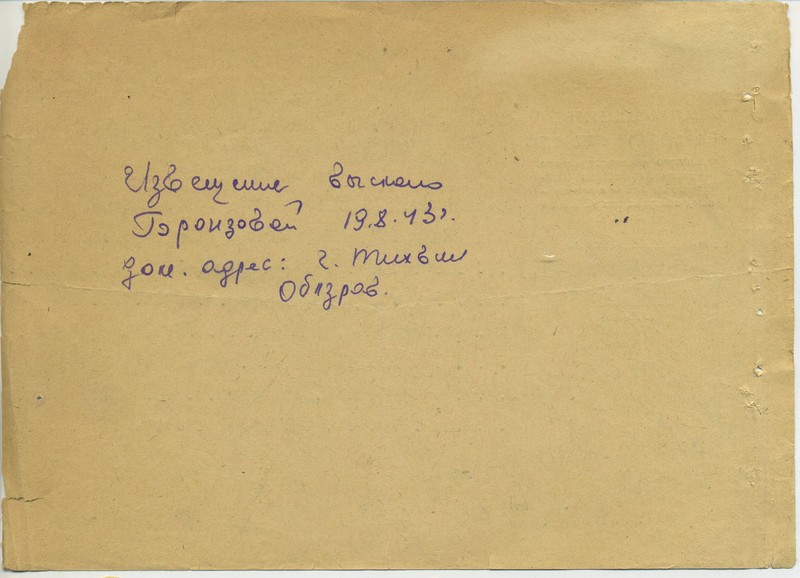 Извещение выслано
19.8.43г.
дом. адрес: г. Тихвин